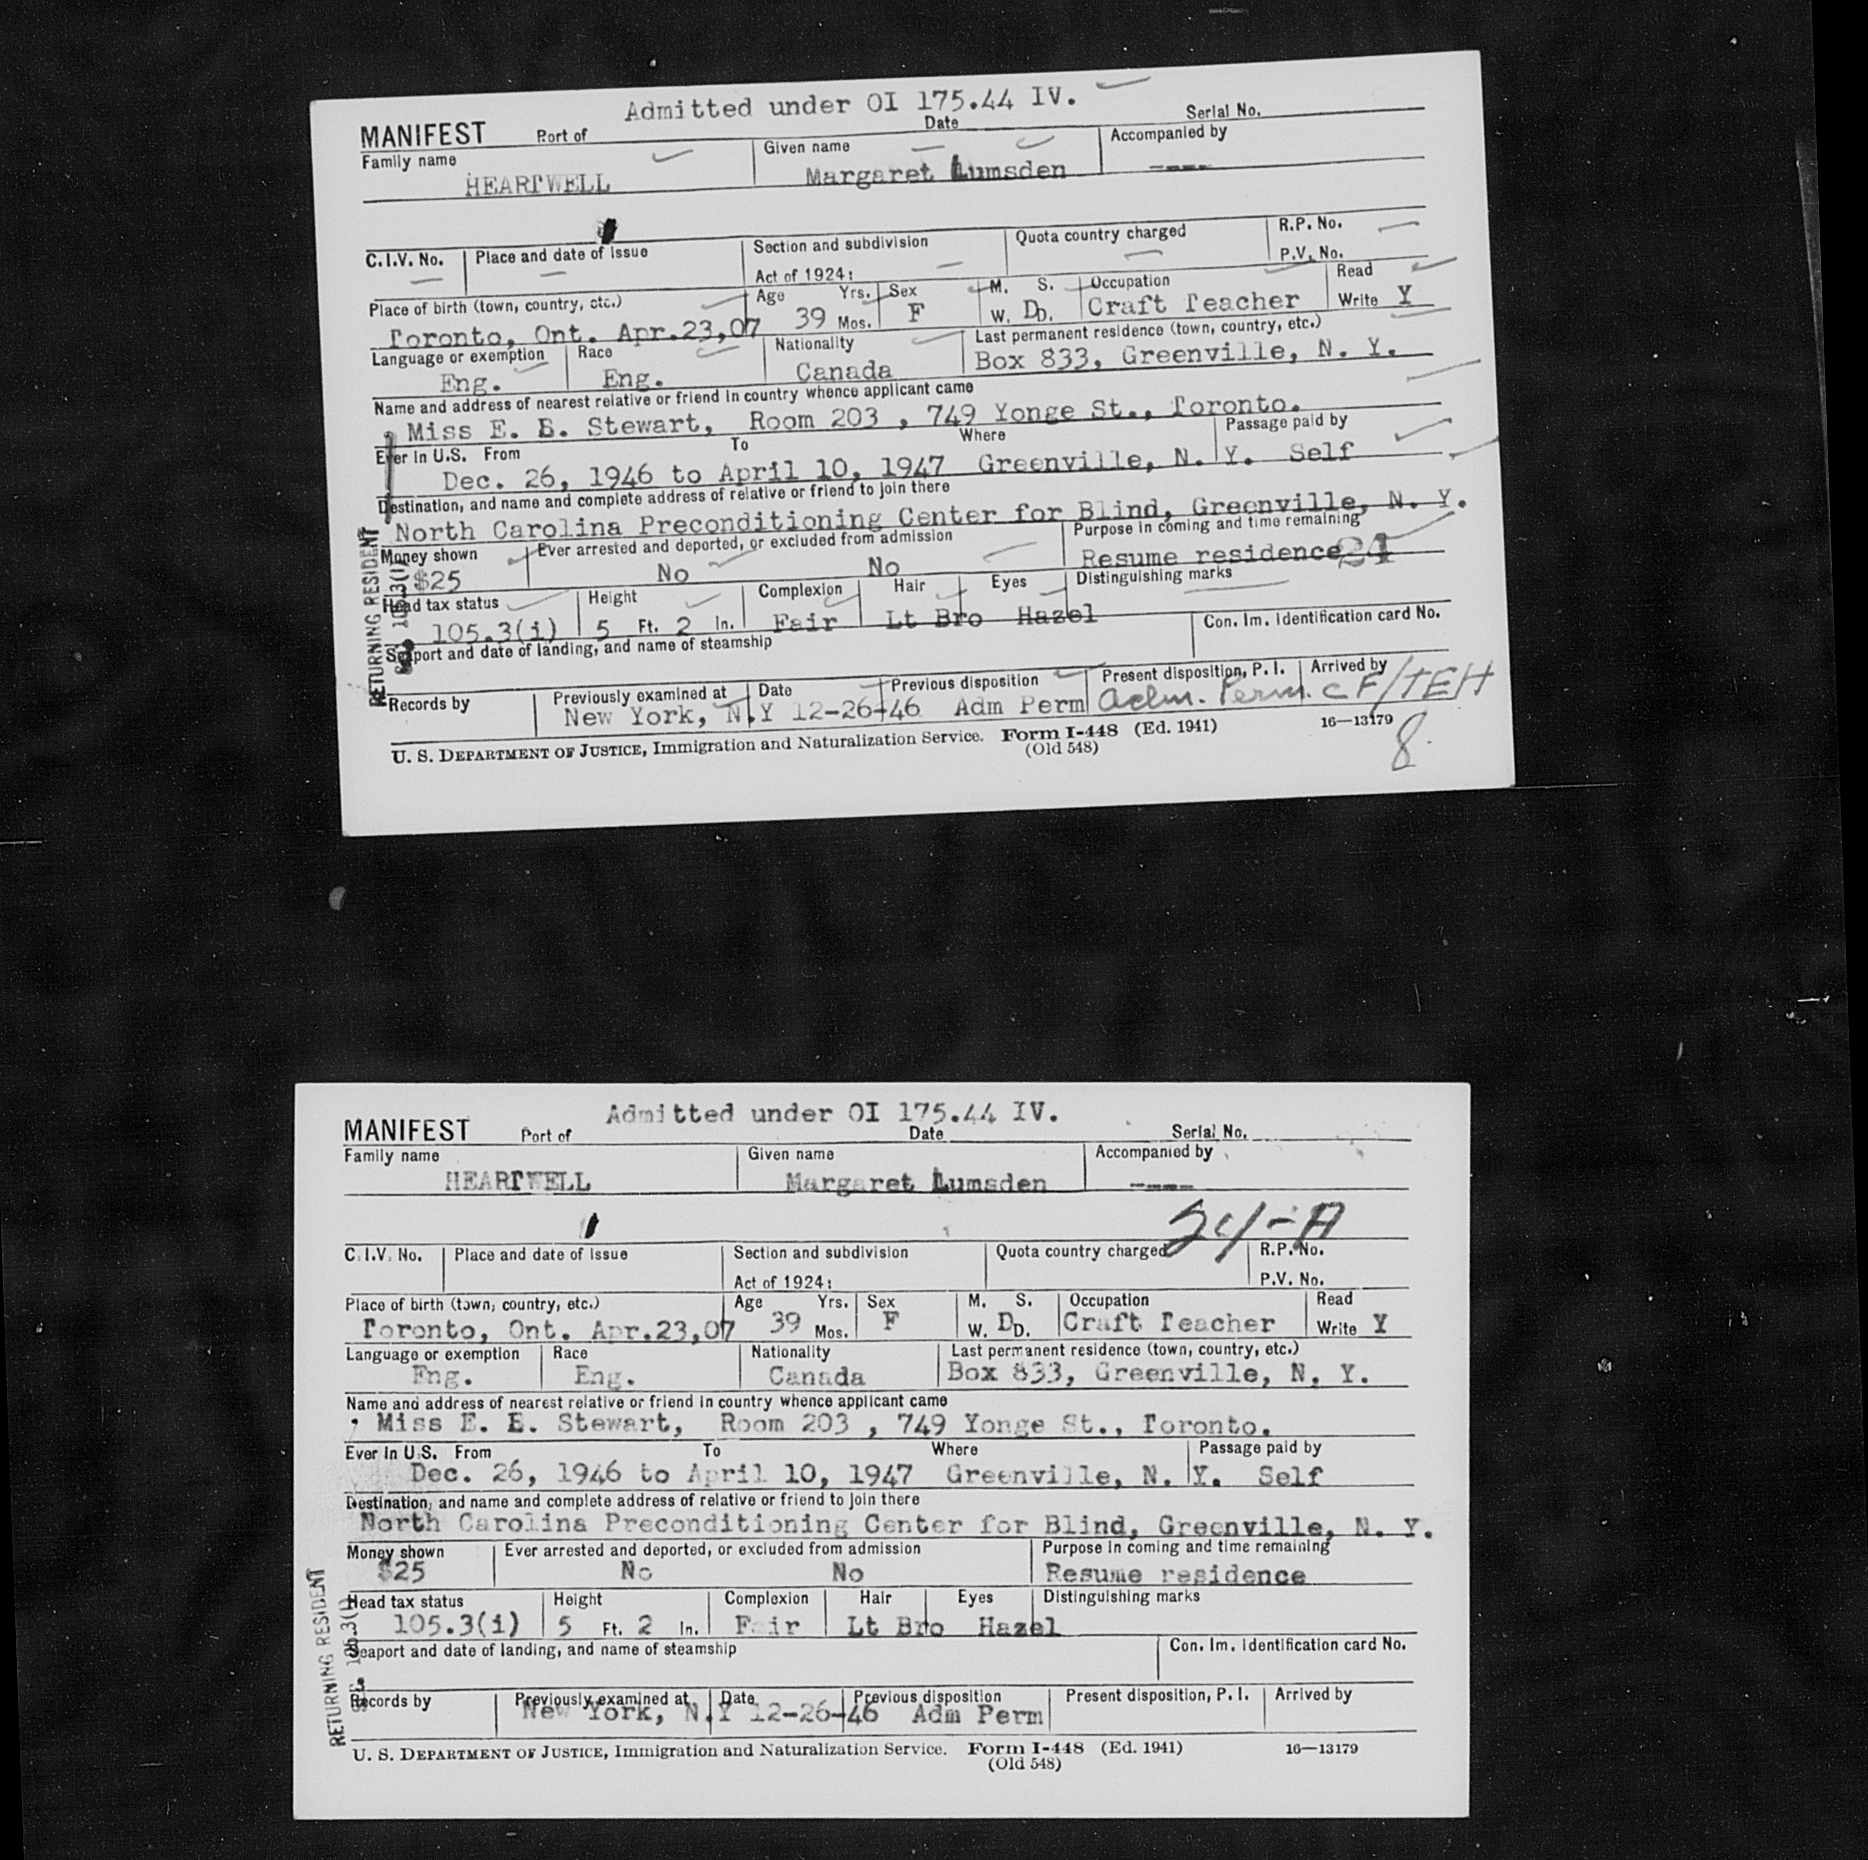 Admitted under OI 175.44 IV.
MANIFEST Port of Date Serial No.
Family name Given name Accompanied by
HEARTWELL Margaret Lumsden ----
C.I.V. No. Place and date of issue Section and subdivision Quota country charged R.P. No.
Act of 1924: P.V. No.
Place of birth (town, country, etc.) Age Yrs. Sex M. S. Occupation Read
Toronto, Ont. Apr.23,07 39 Mos. F W. D D. Craft Teacher Write Y
Language or exemption Race Nationality Last permanent residence (town, country, etc.)
Eng. Eng. Canada Box 833, Greenville, N. Y.
Name and address of nearest relative or friend in country whence applicant came
Miss E. E. Stewart, Room 203 , 749 Yonge St., Toronto.
Ever in U.S. From To Where Passage paid by
Dec. 26, 1946 to April 10, 1947 Greenville, N. Y. Self
Destination, and name and complete address of relative or friend to join there
North Carolina Preconditioning Center for Blind, Greenville, N. Y.
Money shown Ever arrested and deported, or excluded from admission Purpose in coming and time remaining
$25 No No Resume residence 24
Head tax status Height Complexion Hair Eyes Distinguishing marks
105.3(i) 5 Ft. 2 In. Fair Lt Bro Hazel
Seaport and date of landing, and name of steamship Con. Im. Identification card No.
Records by Previously examined at Date Previous disposition Present disposition, P. I. Arrived by
New York, N.Y 12-26-46 Adm Perm adm. Perm. CF/TEH
U. S. DEPARTMENT OF JUSTICE, Immigration and Naturalization Service. Form I-448 (Ed. 1941) 16—13179
(Old 548)
8
RETURNING RESIDENT
105.3(i)
Admitted under OI 175.44 IV.
MANIFEST Port of Date Serial No.
Family name Given name Accompanied by
HEARTWELL Margaret Lumsden ----
24-A
C.I.V. No. Place and date of issue Section and subdivision Quota country charged R.P. No.
Act of 1924: P.V. No.
Place of birth (town, country, etc.) Age Yrs. Sex M. S. Occupation Read
Toronto, Ont. Apr.23,07 39 Mos. F W. D D. Craft Teacher Write Y
Language or exemption Race Nationality Last permanent residence (town, country, etc.)
Eng. Eng. Canada Box 833, Greenville, N. Y.
Name and address of nearest relative or friend in country whence applicant came
Miss E. E. Stewart, Room 203 , 749 Yonge St., Toronto.
Ever in U.S. From To Where Passage paid by
Dec. 26, 1946 to April 10, 1947 Greenville, N. Y. Self
Destination, and name and complete address of relative or friend to join there
North Carolina Preconditioning Center for Blind, Greenville, N. Y.
Money shown Ever arrested and deported, or excluded from admission Purpose in coming and time remaining
$25 No No Resume residence
Head tax status Height Complexion Hair Eyes Distinguishing marks
105.3(i) 5 Ft. 2 In. Fair Lt Bro Hazel
Seaport and date of landing, and name of steamship Con. Im. Identification card No.
Records by Previously examined at Date Previous disposition Present disposition, P. I. Arrived by
New York, N.Y 12-26-46 Adm Perm
U. S. DEPARTMENT OF JUSTICE, Immigration and Naturalization Service. Form I-448 (Ed. 1941) 16—13179
(Old 548)
RETURNING RESIDENT
105.3(i)